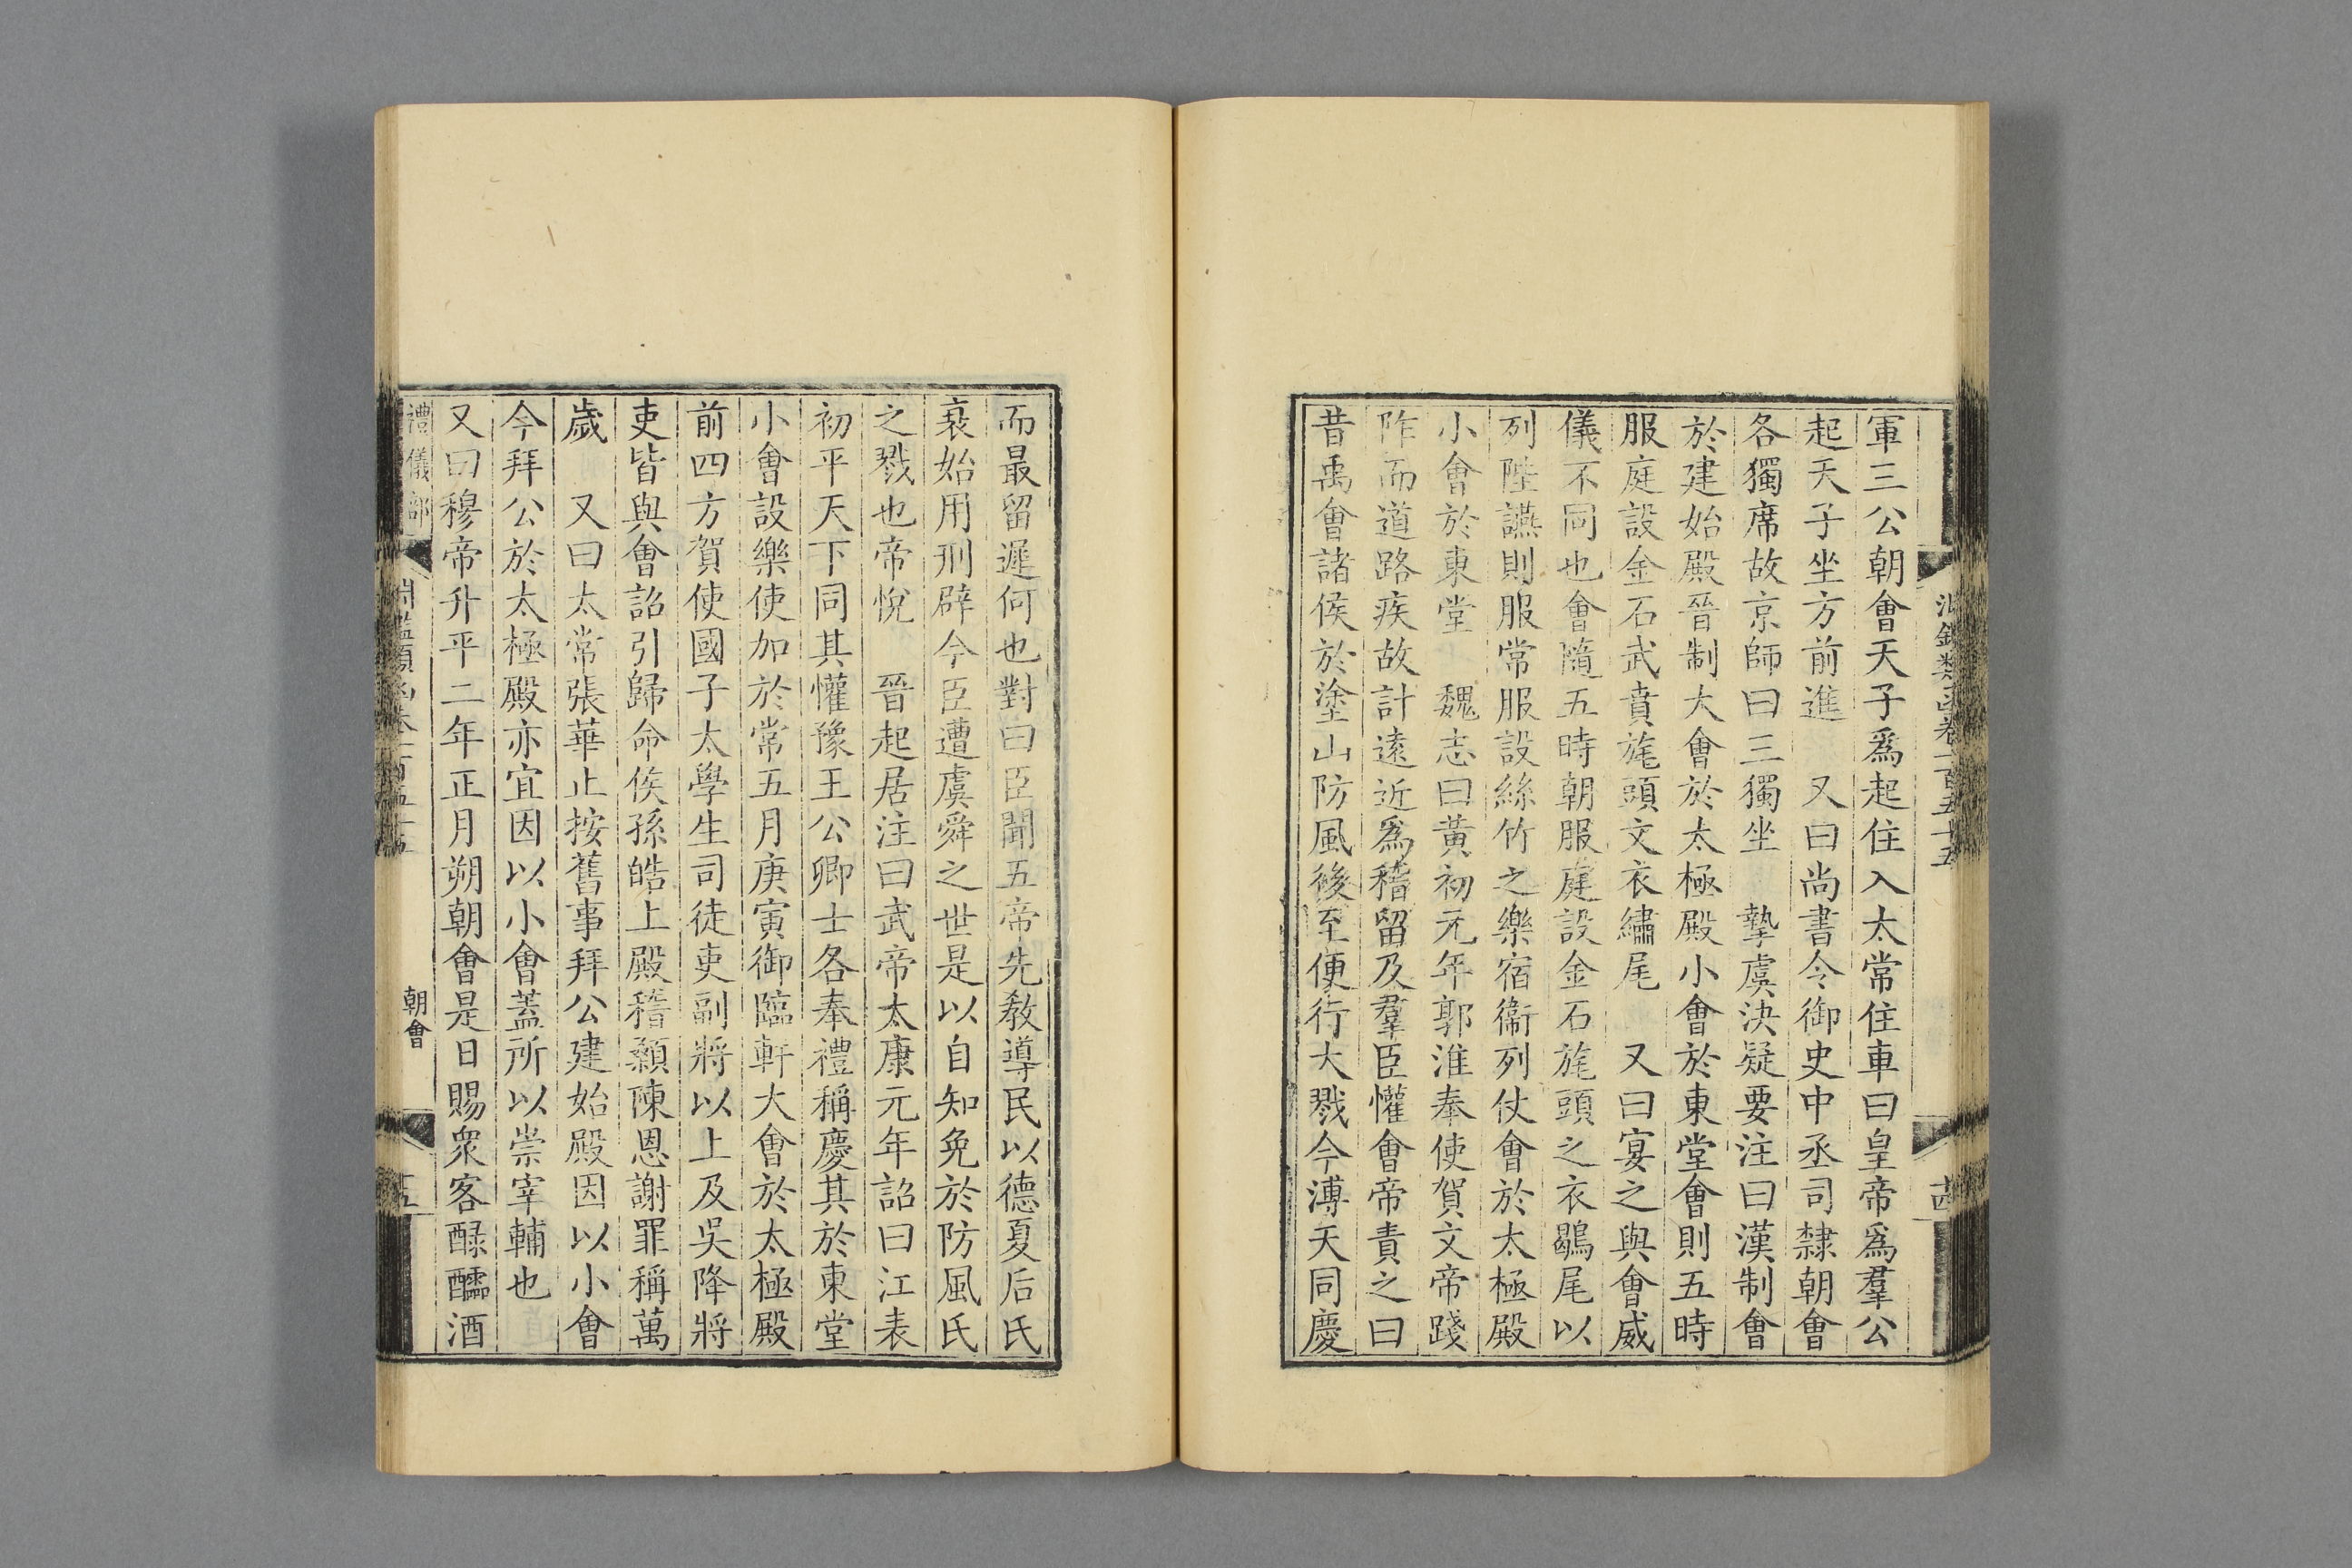 軍三公朝會天子爲起住入太常住車曰皇帝爲羣公
起天子坐方前進　又曰尚書令御史中丞司隸朝會
各獨席故京師曰三獨坐　摯虞決疑要注曰漢制會
於建始殿晉制大會於太極殿小會於東堂會則五時
服庭設金石武賁旄頭文衣繡尾　又曰宴之與會威
儀不同也會隨五時朝服庭設金石旄頭之衣鶡尾以
列陛讌則服常服設絲竹之樂宿衞列仗會於太極殿
小會於東堂　魏志曰黃初元年郭淮奉使賀文帝踐
阼而道路疾故計遠近爲稽留及羣臣懽會帝責之曰
昔禹會諸侯於塗山防風後至便行大戮今溥天同慶
而最留遲何也對曰臣聞五帝先敎導民以德夏后氏
衰始用刑辟今臣遭虞舜之世是以自知免於防風氏
之戮也帝悅　晉起居注曰武帝太康元年詔曰江表
初平天下同其懽豫王公卿士各奉禮稱慶其於東堂
小會設樂使加於常五月庚寅御臨軒大會於太極殿
前四方賀使國子太學生司徒吏副將以上及吳降將
吏皆與會詔引歸命侯孫皓上殿稽顙陳恩謝罪稱萬
歲　又曰太常張華止按舊事拜公建始殿因以小會
今拜公於太極殿亦宜因以小會蓋所以崇宰輔也
又曰穆帝升平二年正月朔朝會是日賜衆客醁醽酒
禮儀部
朝會